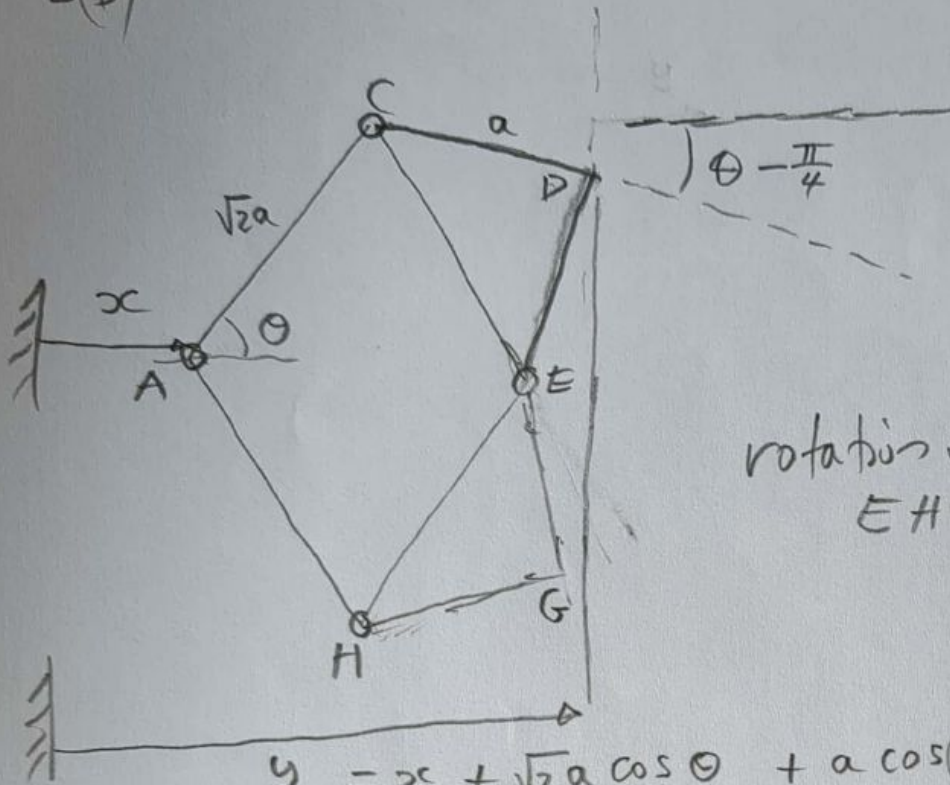 C
a
D
θ - π/4
√2a
x
θ
A
E
rotation
EH
G
H
y = x + √2a cos θ + a cos(